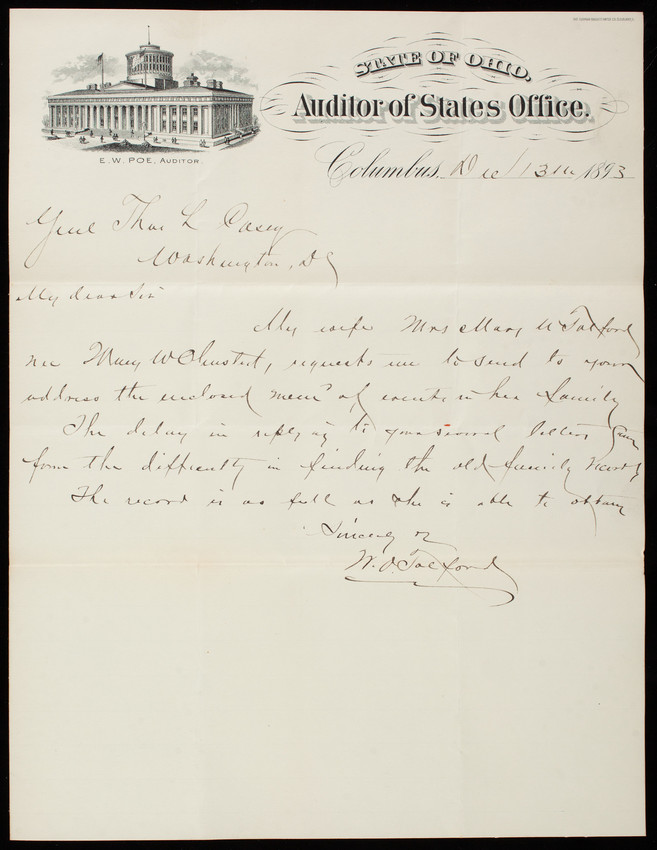 STATE OF OHIO,
Auditor of States Office.
E. W. POE, AUDITOR.
Columbus, Dec 13th 1893
Genl Thos L Casey
Washington, DC
My dear Sir
My wife Mrs Mary W Tolford
nee Mary W Olmsted, requests me to send to your
address the enclosed mem° of events in her family
The delay in replying to your several letters
from the difficulty in finding the old family records
The record is as full as she is able to obtain
Sincerely
W. O. Tolford